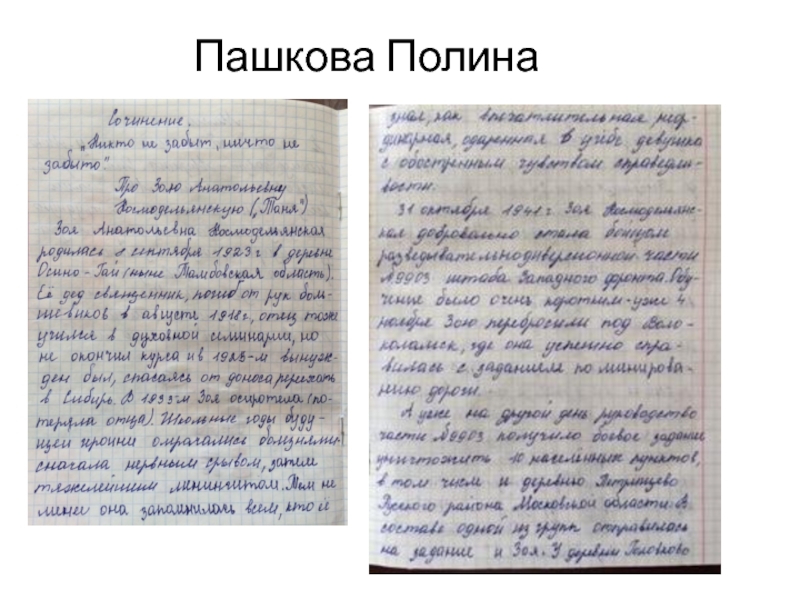 Пашкова Полина
Сочинение.
„Никто не забыт, ничто не
забыто".
Про Зою Анатольевну
Космодемьянскую („Таня")
Зоя Анатольевна Космодемьянская
родилась 1 сентября 1923г в деревне
Осино-Гаи (ныне Тамбовская область).
Её дед священник, погиб от рук боль-
шевиков в августе 1918г, отец тоже
учился в духовной семинарии, но
не окончил курса и в 1928-м вынуж-
ден был, спасаясь от доноса переехать
в Сибирь. В 1933м Зоя осиротела (по-
теряла отца). Школьные годы буду-
щей героини омрачались болезнями
сначала нервным срывом, затем
тяжелейшим менингитом. Тем не
менее она запомнилась всем, кто её
знал, как впечатлительная неор-
динарная, одаренная в учебе девушка
с обостренным чувством справедли-
вости.
31 октября 1941г Зоя Космодемьянс-
кая добровольно стала бойцом
разведывательнодиверсионной части
№9903 штаба Западного фронта. Обу-
чение было очень коротким-уже 4
ноября Зою перебросили под Воло-
коламск, где она успешно спра-
вилась с заданием по минирова-
нию дороги.
А уже на другой день руководство
части №9903 получило боевое задание
уничтожить 10 населённых пунктов,
в том числе и деревню Петрищево
Рузского района Московской области. В
составе одной из групп отправилась
на задание и Зоя. У деревни Головково